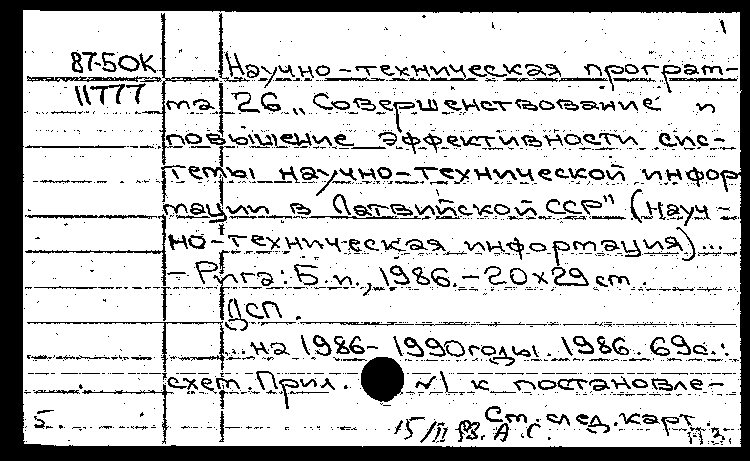 1
87-5OK Научно-техническая програм-
11777 ма 26 „Совершенствование и
повышение эффективности сис-
темы научно-технической инфор
мации в Латвийской ССР" (Науч-
но-техническая информация)...
- Рига: Б.и., 1986. - 20x29 см.
ДСП.
...на 1986-1990 годы. 1986. 69с.:
схем. Прил. №1 к постановле-
См. след. карт.
5. 15/II 88. А. С.